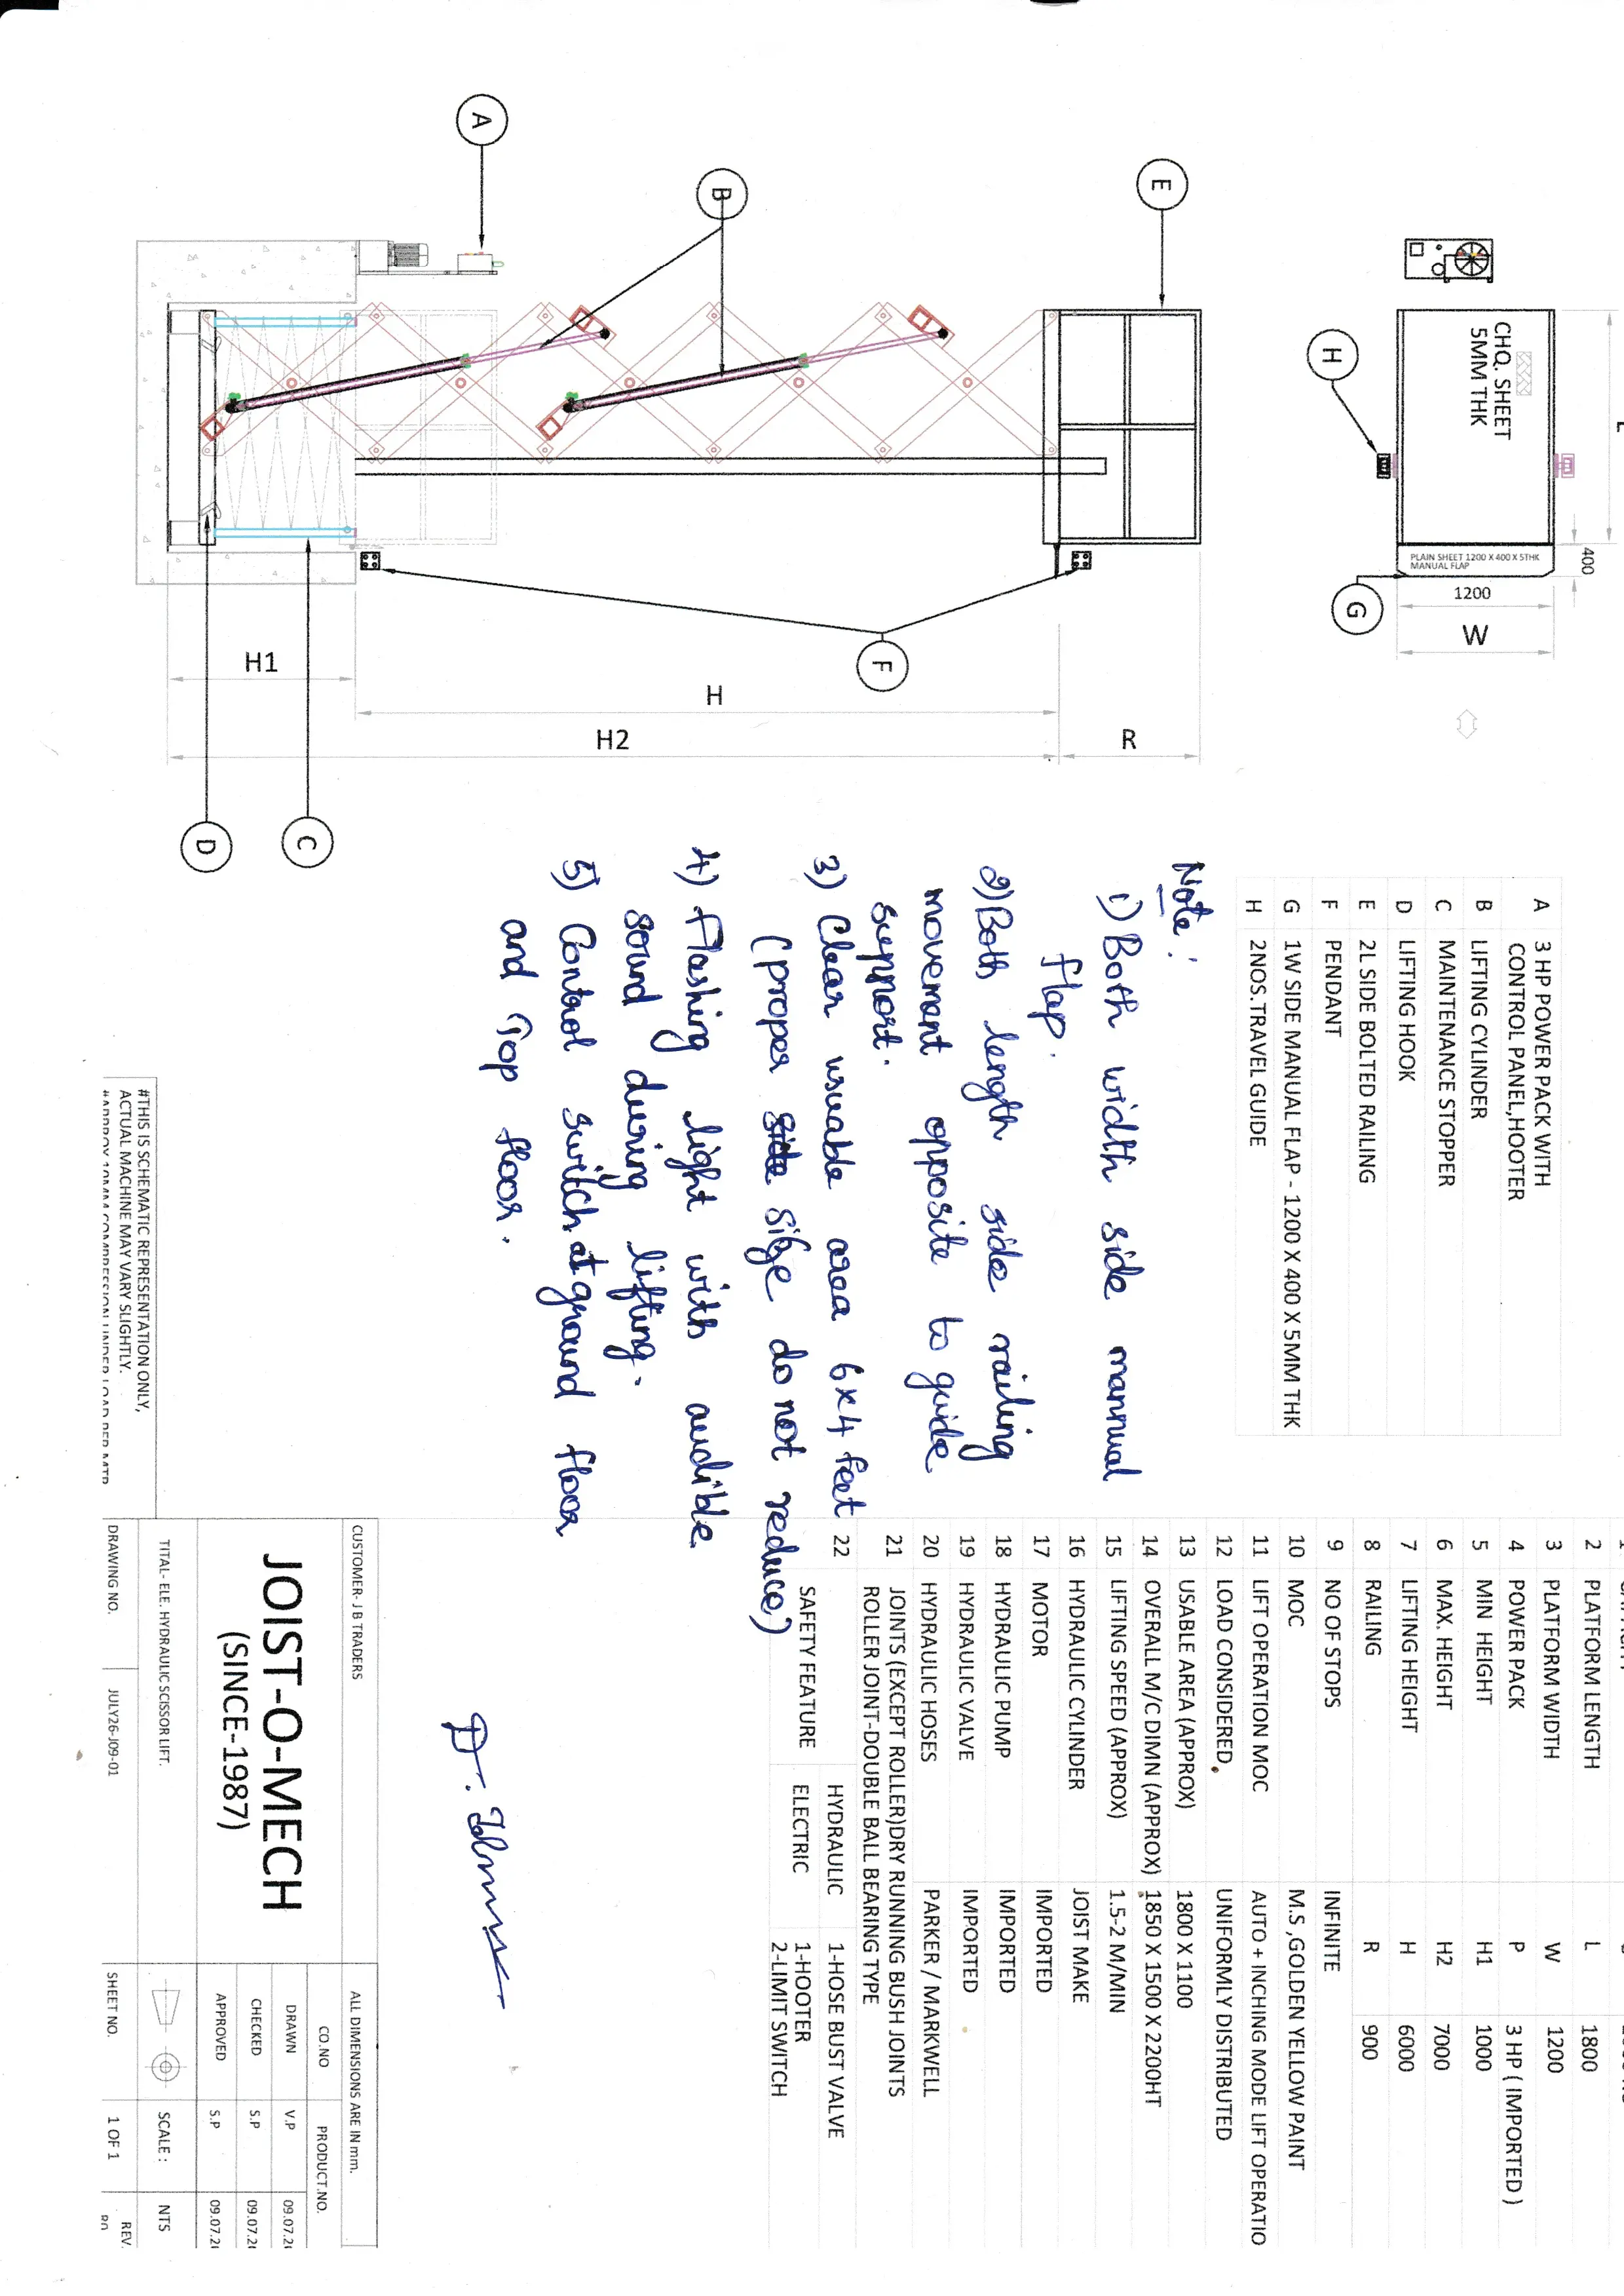 A
B
E
CHQ. SHEET
5MM THK
PLAIN SHEET 1200 X 400 X 5THK
MANUAL FLAP
400
1200
W
H
G
F
H1
H
H2
R
D
C
A 3 HP POWER PACK WITH
CONTROL PANEL,HOOTER
B LIFTING CYLINDER
C MAINTENANCE STOPPER
D LIFTING HOOK
E 2L SIDE BOLTED RAILING
F PENDANT
G 1W SIDE MANUAL FLAP - 1200 X 400 X 5MM THK
H 2NOS.TRAVEL GUIDE
Note:
1) Both width side mannual
flap.
2) Both length side railing
movemant opposite to guide
support.
3) Clear usuable area 6x4 feet
(proper size do not reduce)
4) Flashing light with audible
sound during lifting.
5) Control switch at ground floor
and Top floor.
2 PLATFORM LENGTH L 1800
3 PLATFORM WIDTH W 1200
4 POWER PACK P 3 HP ( IMPORTED )
5 MIN HEIGHT H1 1000
6 MAX. HEIGHT H2 7000
7 LIFTING HEIGHT H 6000
8 RAILING R 900
9 NO OF STOPS INFINITE
10 MOC M.S ,GOLDEN YELLOW PAINT
11 LIFT OPERATION MOC AUTO + INCHING MODE LIFT OPERATIO
12 LOAD CONSIDERED UNIFORMLY DISTRIBUTED
13 USABLE AREA (APPROX) 1800 X 1100
14 OVERALL M/C DIMN (APPROX) 1850 X 1500 X 2200HT
15 LIFTING SPEED (APPROX) 1.5-2 M/MIN
16 HYDRAULIC CYLINDER JOIST MAKE
17 MOTOR IMPORTED
18 HYDRAULIC PUMP IMPORTED
19 HYDRAULIC VALVE IMPORTED
20 HYDRAULIC HOSES PARKER / MARKWELL
21 JOINTS (EXCEPT ROLLER)DRY RUNNING BUSH JOINTS
ROLLER JOINT-DOUBLE BALL BEARING TYPE
22 SAFETY FEATURE HYDRAULIC 1-HOSE BUST VALVE
ELECTRIC 1-HOOTER
2-LIMIT SWITCH
#THIS IS SCHEMATIC REPRESENTATION ONLY,
ACTUAL MACHINE MAY VARY SLIGHTLY.
#APPROX 10MM COMPRESSION UNDER LOAD PER MTR
CUSTOMER- J B TRADERS
JOIST-O-MECH
(SINCE-1987)
TITAL- ELE. HYDRAULIC SCISSOR LIFT.
DRAWING NO. JULY26-J09-01
ALL DIMENSIONS ARE IN mm.
CO.NO PRODUCT.NO.
DRAWN V.P 09.07.2
CHECKED S.P 09.07.2
APPROVED S.P 09.07.2
SCALE : NTS
SHEET NO. 1 OF 1 REV.